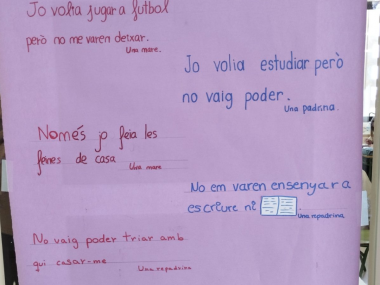 Jo volia jugar a futbol
però no me varen deixar.
Una mare.
Jo volia estudiar però
no vaig poder.
Una padrina.
Només jo feia les
feines de casa
Una mare
No em varen ensenyar a
escriure ni
Una repadrina
No vaig poder triar amb
qui casar-me
Una repadrina